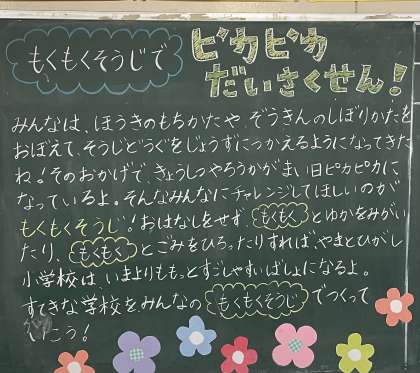 もくもくそうじで
ピカピカ
だいさくせん!
みんなは、ほうきのもちかたや、ぞうきんのしぼりかたを
おぼえて、そうじどうぐをじょうずにつかえるようになってきた
ね!そのおかげで、きょうしつやろうかがまい日ピカピカに
なっているよ。そんなみんなにチャレンジしてほしいのが
もくもくそうじ!おはなしをせず、もくもくとゆかをみがい
たり、もくもくとごみをひろったりすれば、やまとひがし
小学校は、いまよりももっとすごしやすいばしょになるよ。
すてきな学校をみんなのもくもくそうじでつくって
いこう!